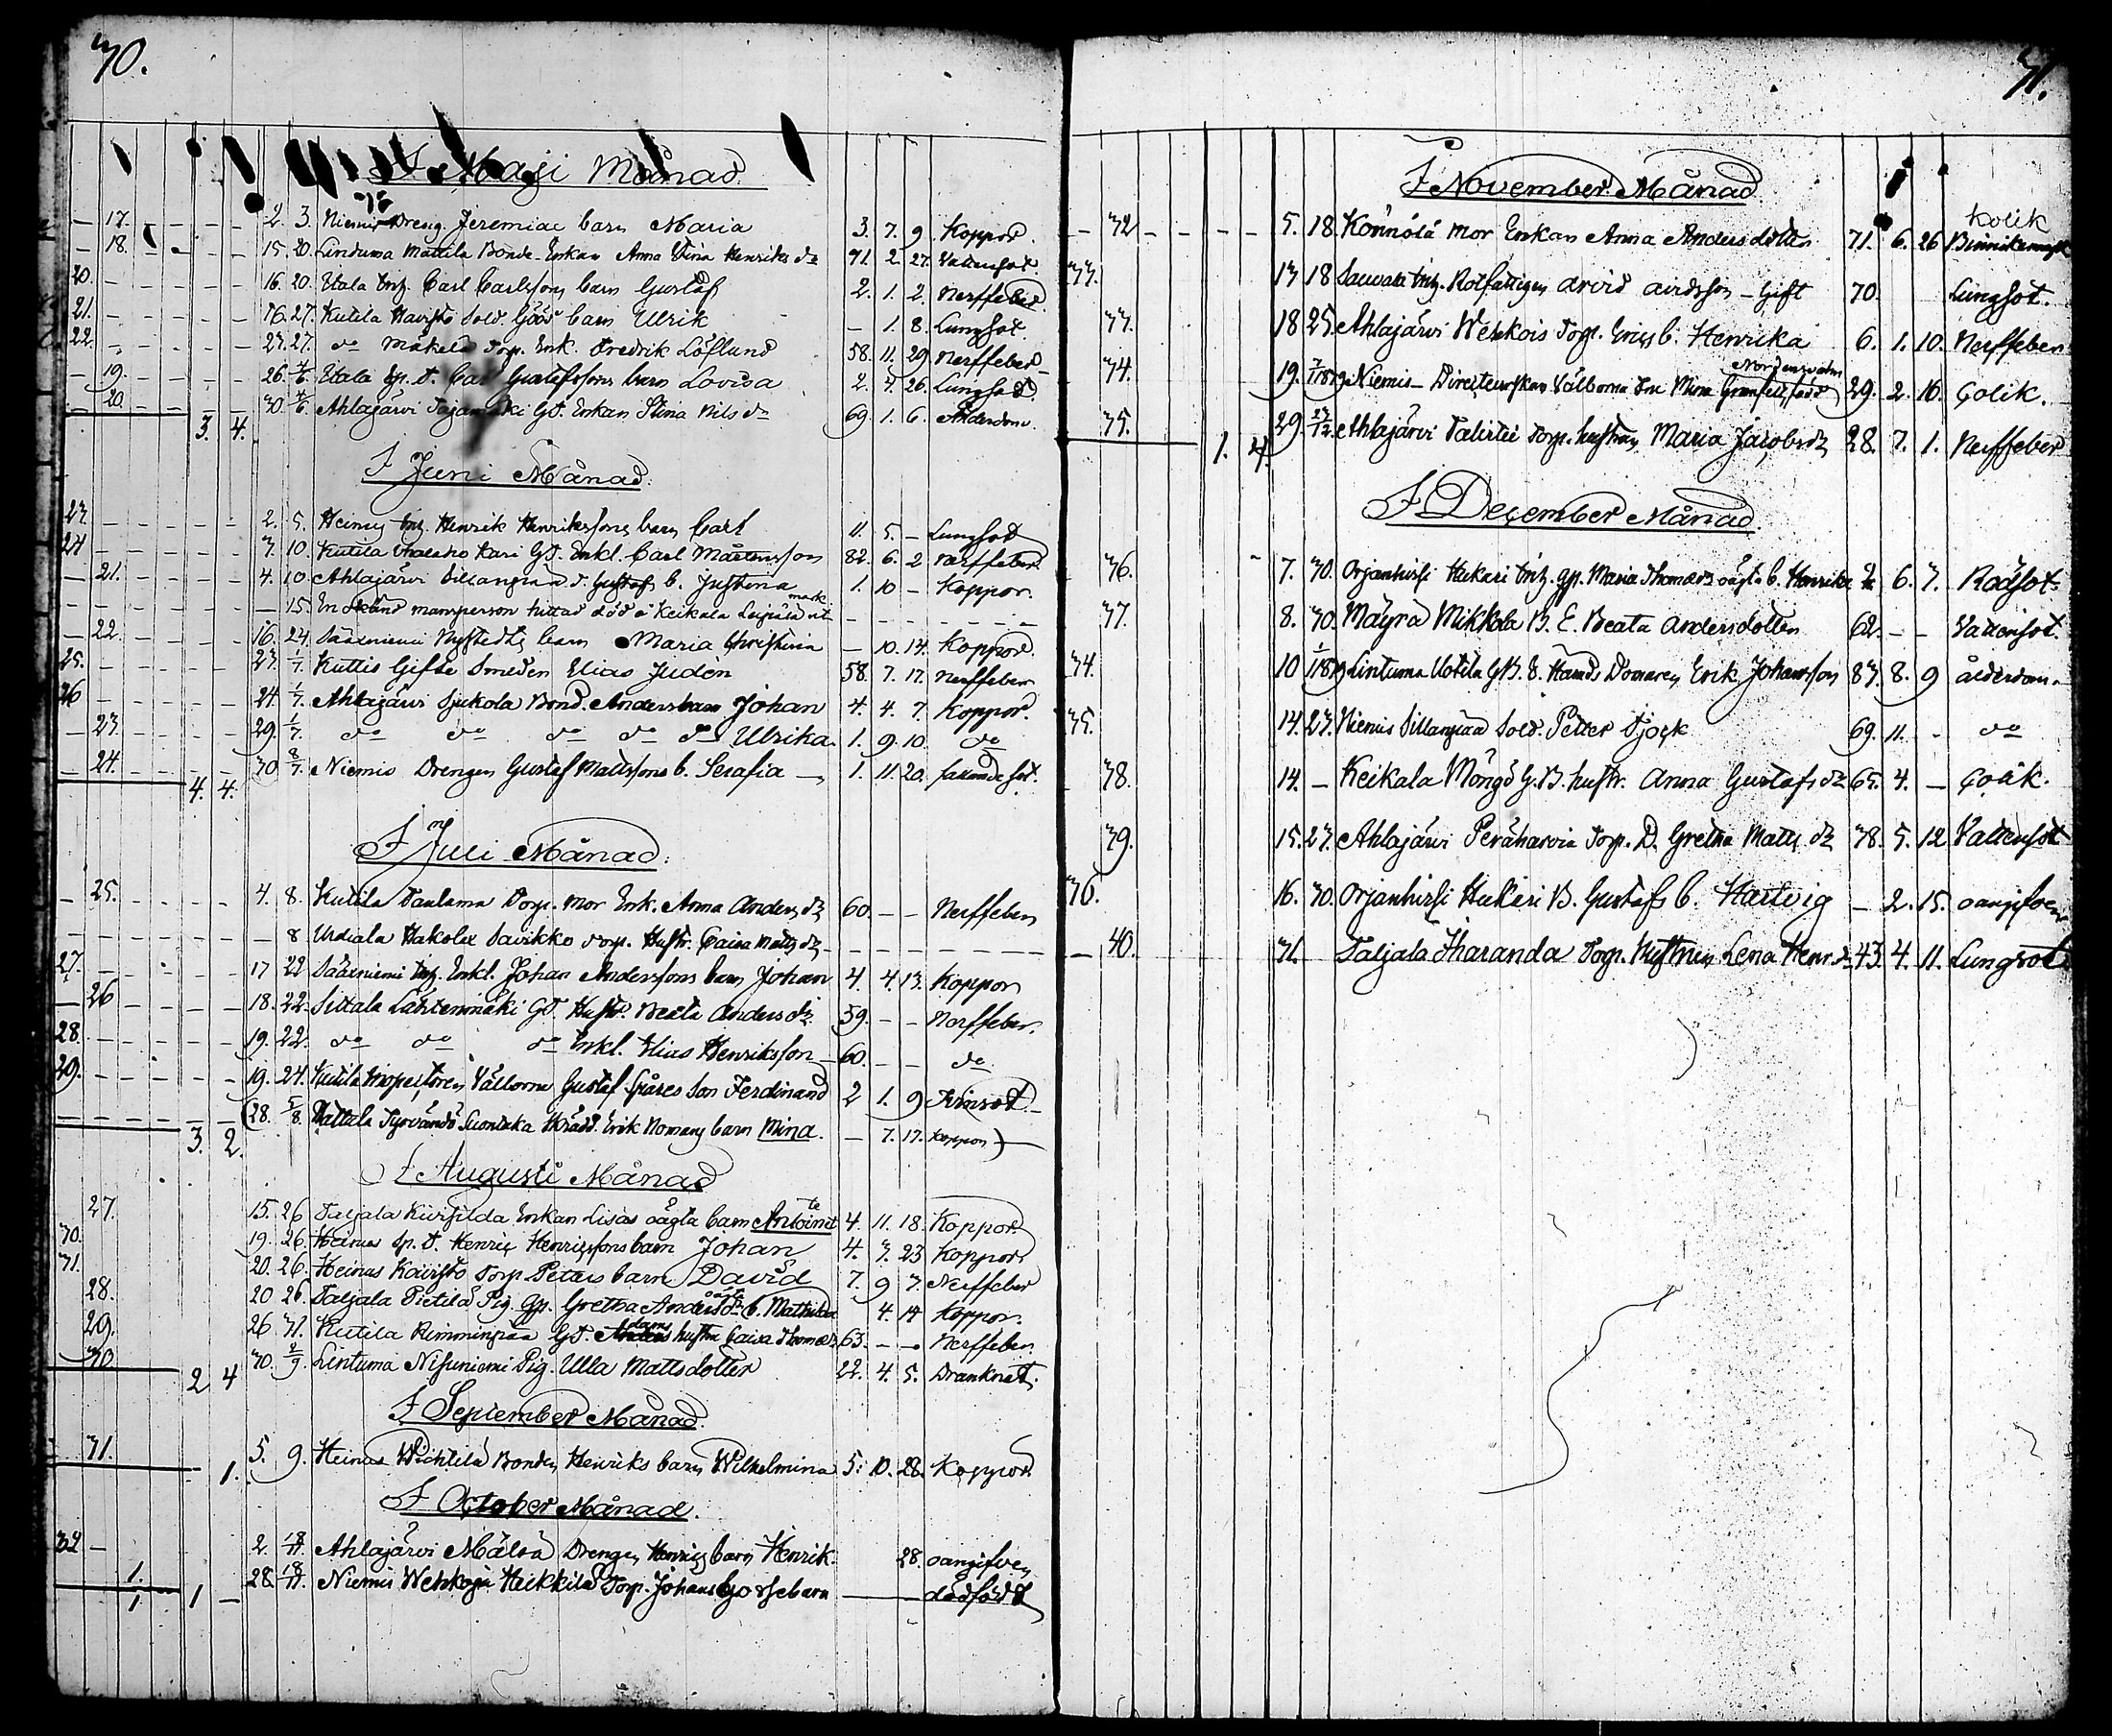 70.
I Maji Månad
17. 2. 3. Niemis Dreng. Jeremiae barn Maria 3. 7. 9. Koppor.
18. 15. 20. Linduma Mattila Bonde-Enkan Anna Stina Henriks dr 71. 2. 27. Vattensot.
20. 16. 20. Utala Inh. Carl Carlssons barn Gustaf 2. 1. 2. Nerffeber.
21. 16. 27. Kutila Havisto Sold. Göös barn Ulrik — 1. 8. Lungsot.
22. 23. 27. do Mäkelä Torp. Enk. Fredrik Löflund 58. 11. 29. Nerffeber
19. 26. 4/6. Utala Sp. T. Carl Gustafssons barn Lovisa 2. 4. 26. Lungsot.
20. 30. 4/6. Ahlajärvi Gd. Enkan Stina Nils dr 69. 1. 6. Ålderdom.
3. 4.
I Juni Månad.
23. 2. 5. Heinus Inh. Henrik Henrikssons barn Carl 11. 5. — Lungsot
24. 3. 10. Kutila Kari Gd. Enkl. Carl Mårtensson 82. 6. 2 Nerffeber
21. 4. 10. Ahlajärvi Sillanpää d. Gustafs b. Justina 1. 10 — Koppor.
— 15. En okänd mansperson hittad död å Keikala mark
22. 16. 24. Sääxniemi Nystedts barn Maria Christina — 10. 14. Koppor.
25. 23. 1/7. Kuttis Gifte Smeden Elias Judén 58. 7. 17. Nerffeber
26 24. 1/7. Ahlajärvi Sjukola Bond. Anders barn Johan 4. 4. 7. Koppor.
23. 29. 1/7. do do do do do Ulrika. 1. 9. 10. do
24. 30 8/7. Niemis Drengen Gustaf Mattssons b. Serafia — 1. 11. 20. fallandesot.
4. 4.
I Juli Månad.
25. 4. 8. Kutila Taulama Torp. mor Enk. Anna Anders dr 60. — — Nerffeber
— 8 Urdiala Hakola Savikko Torp. Hustr. Caisa Matts dr
27. 17 22 Sääxniemi Inh. Enkl. Johan Anderssons barn Johan 4 4. 13. Koppor
26 18. 22. Sittala Lähtenmäki Gd. Hustr. Beata Anders dr 59. — — Nerffeber.
28. 19. 22. do do do Enkl. Elias Henriksson 60. — — do
29. 19. 24. Kutila Inspectoren Välborne Gustaf Spåres Son Ferdinand 2 1. 9
(28. 5/8. Mattila Suonikka Skrädd. Erik Nomans barn Mina. — 7. 17. Koppor)
3. 2.
I Augusti Månad
27. 15. 26 Taljala Kivisilda Enkan Lisas oägta barn Antoinette 4. 11. 18. Koppor
30. 19. 26. Heinus Sp. T. Henric Henricssons barn Johan 4. 3. 23 Koppor
31. 20. 26. Heinus Kavisto Torp. Peters barn David 7. 9 7. Nerffeber
28. 20 26. Taljala Pietilä Pig. Gp. Gretha Anders dr oägta b. Mathilda 4. 14 Koppor.
29. 26 31. Kutila Rimminpää Gd. Adams hustru Caisa Thomæ dr 63. — — Nerffeber.
30 30. 2/9. Lintuma Nisuniemi Pig. Ulla Mattsdotter 22. 4. 5. Dranknat.
2 4
I September Månad.
31. 5. 9. Heinus Wichtilä Bonden Henriks barn Wilhelmina 5. 10. 28. Koppor.
1.
I October Månad.
32 — 2. 18/11. Ahlajärvi Mälsä Drengen Henrics barn Henrik. 28. oangifven
1. 28. 18/11. Niemis Wehkoja Heikkilä Torp. Johans Gossebarn — dödfödd
1 1 —
71.
I November Månad
32 5. 18. Könnölä mor Enkan Anna Andersdotter 71. 6. 26 Kolik
33. 13 18 Inh. Rotfattigen Arvid Arvidsson - Gift 70. Lungsot.
33. 18 25. Ahlajärvi Wehkois Torp. Erics b. Henrika 6. 1. 10. Nerffeber
34. 19. 7/1819 Niemis — Directeurskan Välborna Fru Mina Granfelt, född Nordenswahn 29. 2. 16. Colik.
35. 29. 27/12. Ahlajärvi Torp. hustrun Maria Jacobs dr 28. 7. 1. Nerffeber
1. 4.
I December Månad.
36. 7. 30. Orjanhirsi Hukari Inh. gp. Maria Thomædrs oägta b. Henrika 6. 7. Rödsot.
37. 8. 30. Mäyrä Mikkola B. E. Beata Andersdotter 62. — — Vattensot.
34. 10 1/1819 Lintuma Uotila G.B. Domaren Erik Johansson 83. 8. 9 ålderdom.
35. 14. 23. Niemis Sillanpää Sold. Petter Tjock 69. 11. — do
38. 14. — Keikala Mångö G.B. hustr. Anna Gustafs dr 65. 4. — Colik.
39. 15. 27. Ahlajärvi Peräharvia Torp. D. Gretha Matts dr 38. 5. 12 Vattensot
36. 16. 30. Orjanhirsi Hukari B. Gustafs b. Hartvig — 2. 15. oangifven
40. 31. Taljala Iharanda Torp. Hustrun Lena Henr. dr 43. 4. 11. Lungsot